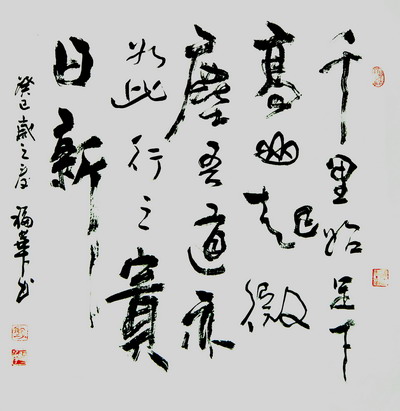 千里始足下
高山起微
塵吾道亦
如此行之貴
日新
癸巳歲之夏 福華书